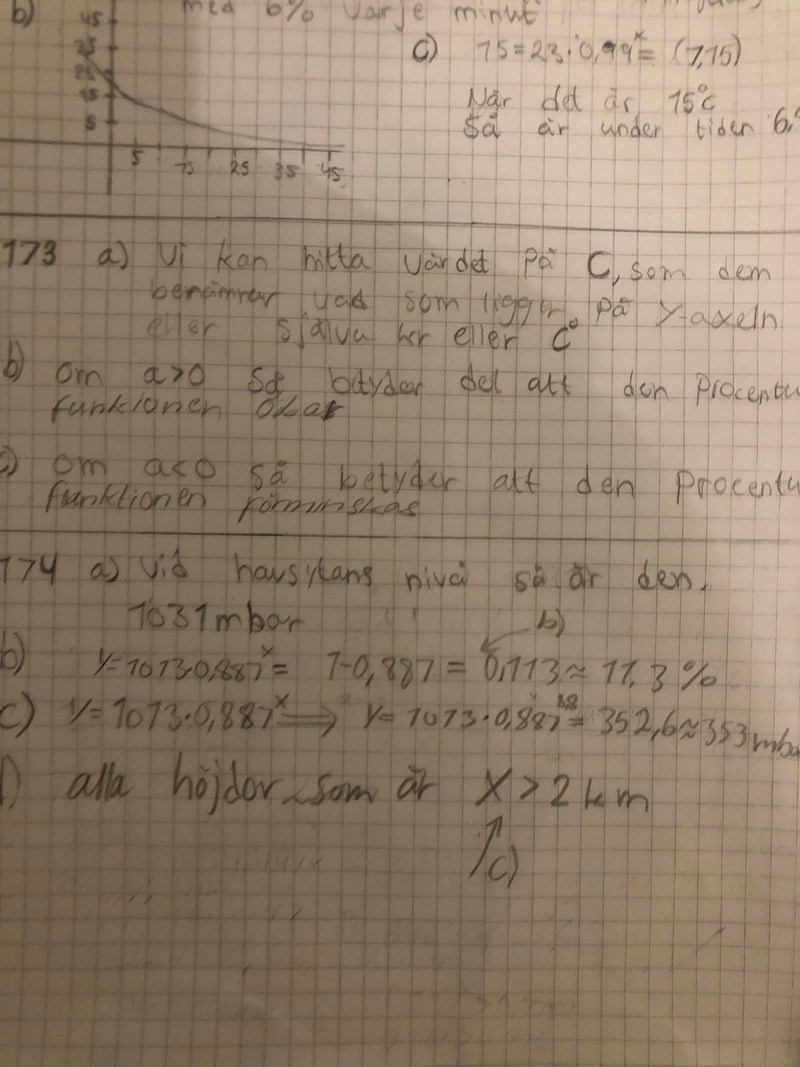 med 6% varje minut
b)
45
25
15
5
5 15 25 35 45
c) 15=23·0,94ˣ= (7,15)
När det är 15°c
Så är under tiden 6,
173 a) Vi kan hitta värdet på C, som dem
vad som ligger på y-axeln
eller själva eller C°
b) om a>0 så betyder det att den Procentu
funktionen ökar
om a<0 så betyder att den Procentu
funktionen förminskas
174 a) vid havsytans nivå så är den.
1031mbar
b)
b) y=1013·0,887ˣ= 1-0,887 = 0,113≈11,3%
c) y=1013·0,887ˣ ⟹ y= 1013·0,887 = 352,6≈353mba
alla höjder som är X>2km
c)